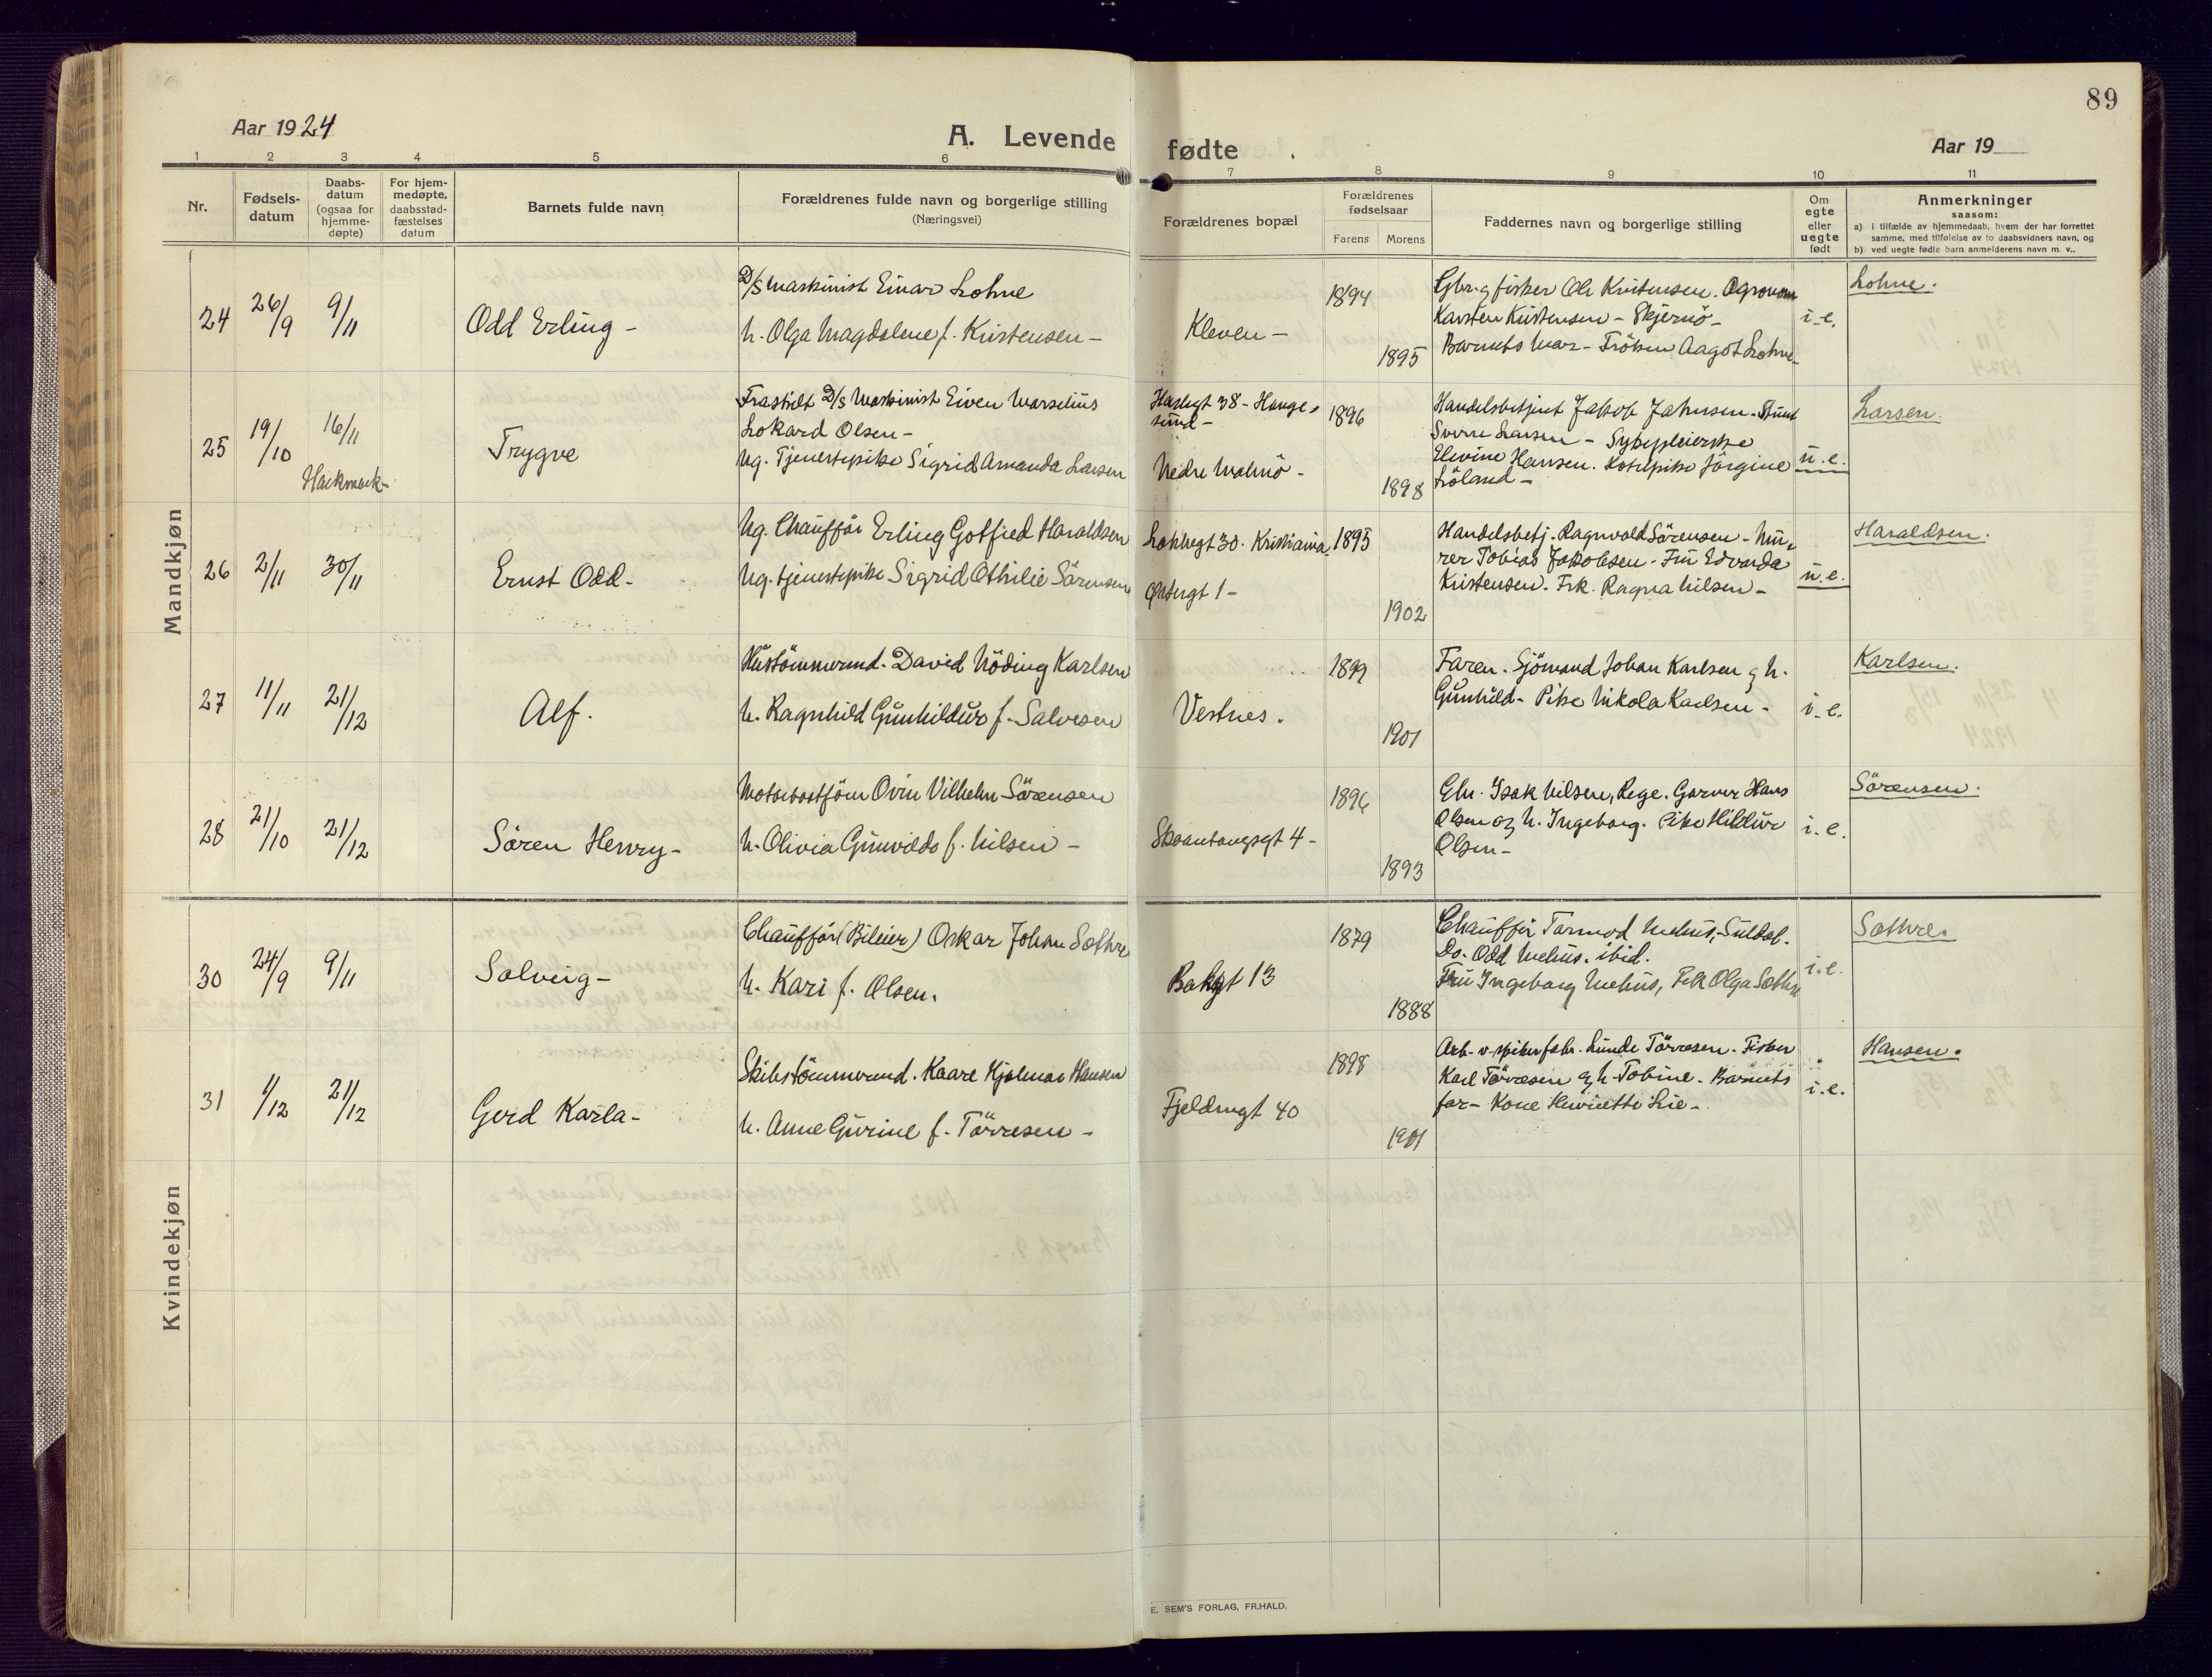 89
Aar 1924
A. Levende
fødte
Aar 19
1 2 3 4 5 6 7 8 9 10 11
Nr.
Fødsels-
datum
Daabs-
datum
(ogsaa for
hjemme-
døpte)
For hjem-
medøpte,
daabsstad-
fæstelses
datum
Barnets fulde navn
Forældrenes fulde navn og borgerlige stilling
(Næringsvei)
Forældrenes bopæl
Forældrenes
fødselsaar
Farens Morens
Faddernes navn og borgerlige stilling
Om
egte
eller
uegte
født
Anmerkninger
saasom:
a) i tilfælde av hjemmedaab, hvem der har forrettet
samme, med tilføielse av to daabsvidners navn, og
b) ved uegte fødte barn anmelderens navn m. v..
Mandkjøn
24
26/9
9/11
Odd Erling -
D/S Maskinist Einar Lohne
h. Olga Magdalene f. Kristensen -
Kleven -
1894
1895
Gbr. g fisker Ole Kristensen. Agronom
Karsten Kristensen - Skjernö -
Barnets Mor - Fröken Aagot Lohne
i. e.
Lohne.
25
19/10
16/11
Harkmark -
Trygve
Fraskilt D/S Maskinist Eiven Marselius
Lokard Olsen -
Ug. Tjenestepike Sigrid Amanda Larsen
Haslegt 38 - Hauge-
sund -
Nedre Malmö -
1896
1898
Handelsbetjent Jakob Jahnsen.
Sverre Larsen - Sykepleierske
Elevine Hansen. Jörgine
Löland -
u. e.
Larsen.
26
2/11
30/11
Ernst Odd -
Ug. Chaufför Erling Gotfred Haraldsen
Ug. tjenestepike Sigrid Othilie Sörensen
Kristiania
Östergt 1 -
1895
1902
Handelsbetj. Ragnvald Sörensen - Mu-
rer Tobias Jakobsen - Fru Edvarda
Kristensen. Frk. Ragna Nilsen -
u. e.
Haraldsen.
27
11/11
21/12
Alf.
Hustömmermd. David Nöding Karlsen
h. Ragnhild Gunhildur f. Salvesen
Vestnes.
1899
1901
Faren. Sjömand Johan Karlsen g h.
Gunhild - Pike Nikola Karlsen -
i. e.
Karlsen.
28
21/10
21/12
Sören Henry -
Vilhelm Sörensen
h. Olivia Gunvilda f. Nilsen -
Skoantangsgt 4 -
1896
1893
Gbr. Isak Nilsen, Rege. Garver Hans
Olsen og h. Ingeborg. Pike Hildur
Olsen -
i. e.
Sörensen.
Kvindekjøn
30
24/9
9/11
Solveig -
Chaufför (Bileier) Oskar Johan Sæthre
h. Kari f. Olsen.
Bakgt 13
1879
1888
Chaufför Tormod Mehus, Suldal.
Do. Odd Mehus. ibid.
Fru Ingeborg Mehus, Frk Olga Sæthre
i. e.
Sæthre.
31
1/12
21/12
Gerd Karla -
Skibstömmermd. Kaare Hjalmar Hansen
h. Anne Gurine f. Törresen -
Fjeldmgt 40
1898
1901
Arb. v. spikerfabr. Lunde Törresen. Fisker
Karl Törresen g h Tobine. Barnets
far - Kone Henriette Lie -
i. e.
Hansen.
E. SEM'S FORLAG, FR.HALD.